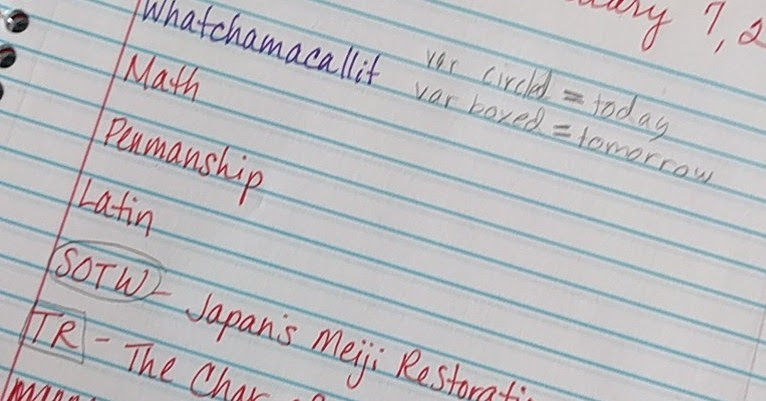 7, 2
Whatchamacallit
var circled = today
var boxed = tomorrow
Math
Penmanship
Latin
SOTW - Japan's Meiji
TR - The